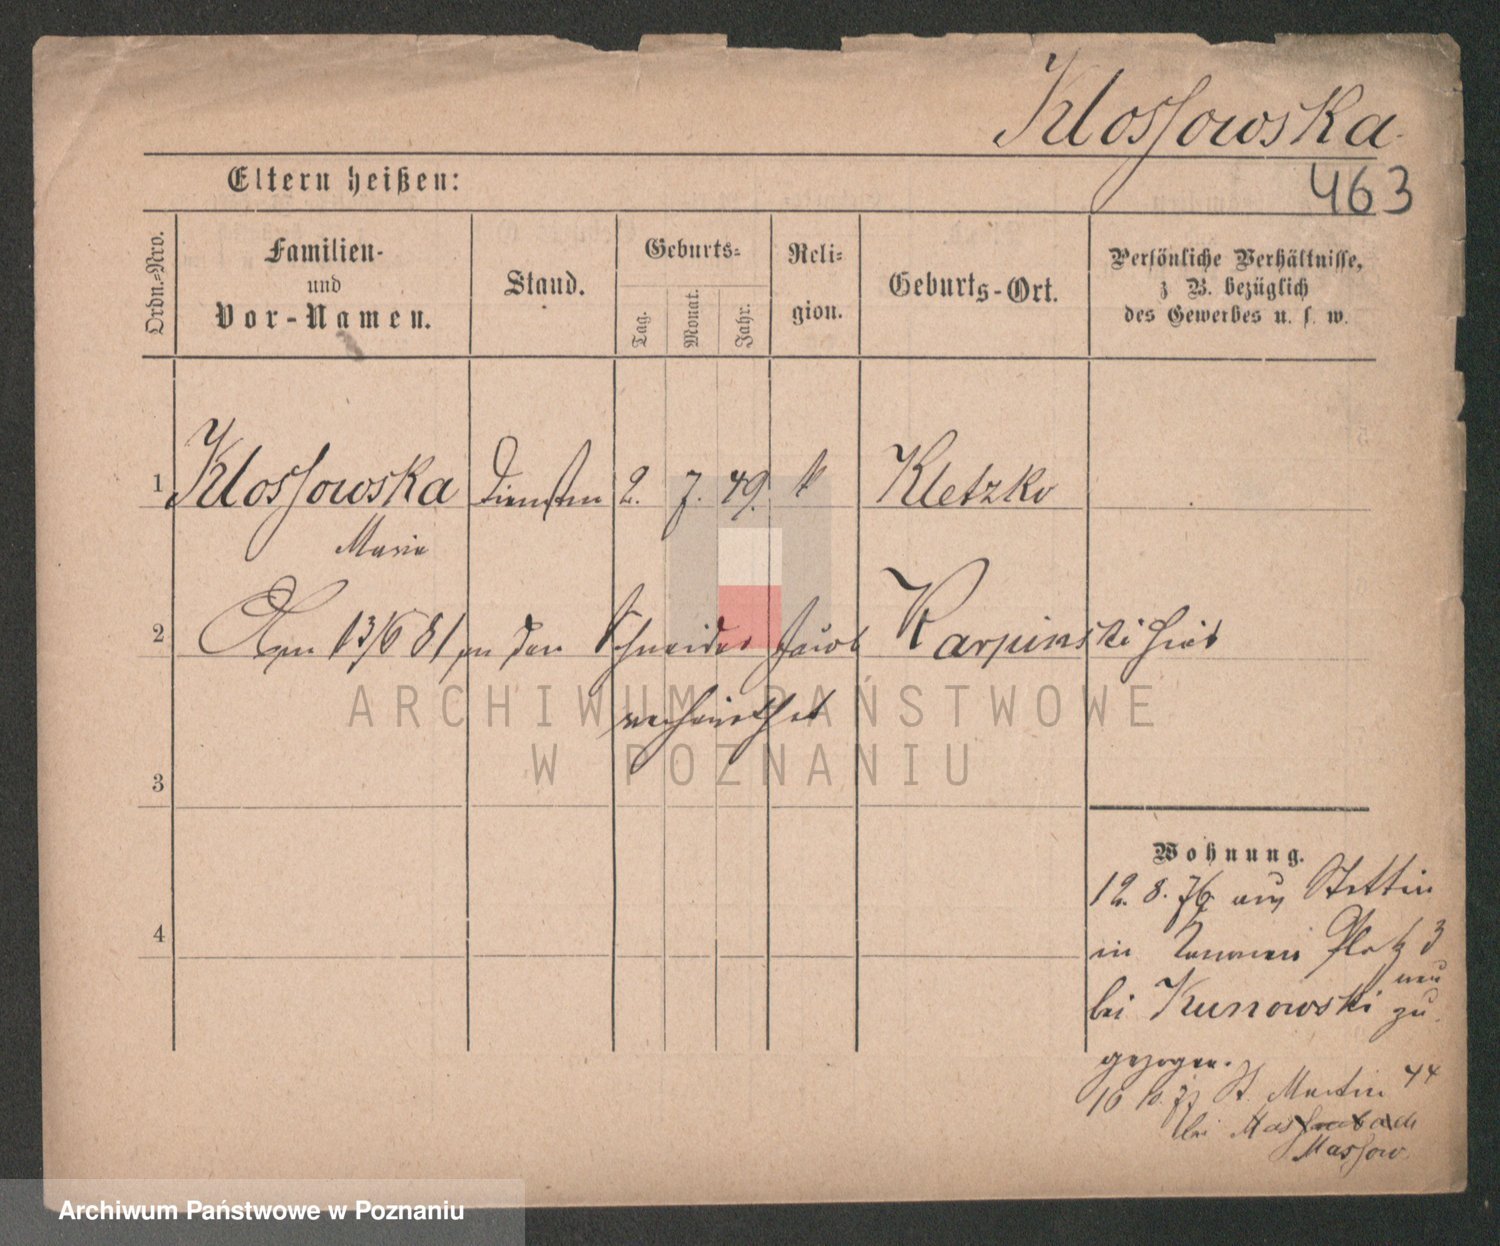 Klossowska
463
Eltern heißen:
Ordn.-Nro.
Familien-
und
Vor-Namen.
Stand.
Geburts-
Tag.
Monat.
Jahr.
Reli-
gion.
Geburts-Ort.
Persönliche Verhältnisse,
z B. bezüglich
des Gewerbes u. s. w.
1 Klossowska 2. 7. 49. k Kletzko
Maria
2 Am 13/6 81 an den Schneider Jacob Karpinski hier
verheirathet
3
Wohnung.
12. 8. 76 aus Stettin
4
in Platz 3
bei Kunowski neu zu
gezogen.
16 10. St. Martin 44
bei
Massow
ARCHIWUM PAŃSTWOWE
W POZNANIU
Archiwum Państwowe w Poznaniu